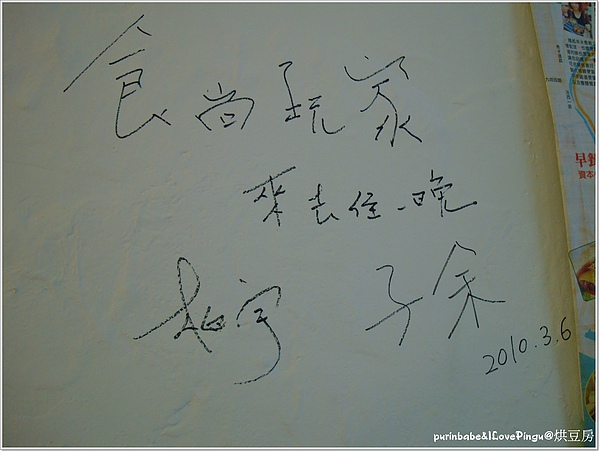 食尚玩家
來去住一晚
柏宇 子余
2010.3.6
早餐
purinbabe&ILovePingu@烘豆房